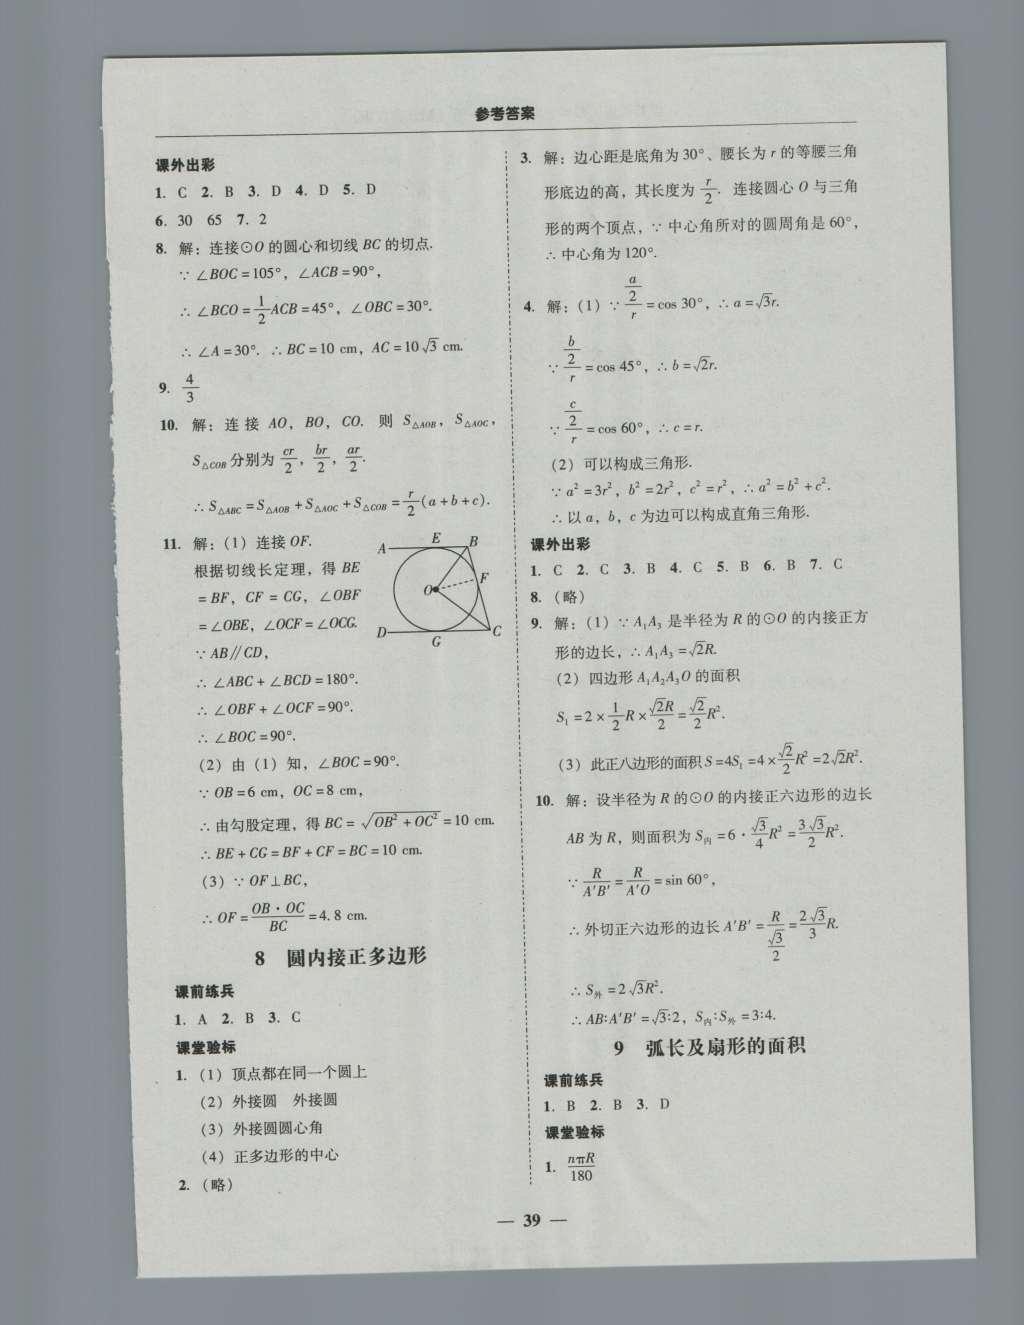 参考答案
课外出彩
1. C 2. B 3. D 4. D 5. D
6. 30 65 7. 2
8. 解：连接⊙O 的圆心和切线 BC 的切点.
∵ ∠BOC = 105°，∠ACB = 90°，
∴ ∠BCO = 1/2 ACB = 45°，∠OBC = 30°.
∴ ∠A = 30°. ∴ BC = 10 cm，AC = 10√3 cm.
9. 4/3
10. 解：连接 AO，BO，CO. 则 S△AOB，S△AOC，
S△COB 分别为 cr/2，br/2，ar/2.
∴ S△ABC = S△AOB + S△AOC + S△COB = r/2 (a + b + c).
11. 解：（1）连接 OF.
根据切线长定理，得 BE
= BF，CF = CG，∠OBF
= ∠OBE，∠OCF = ∠OCG.
∵ AB∥CD，
∴ ∠ABC + ∠BCD = 180°.
∴ ∠OBF + ∠OCF = 90°.
∴ ∠BOC = 90°.
A E B
O F
D G C
（2）由（1）知，∠BOC = 90°.
∵ OB = 6 cm，OC = 8 cm，
∴ 由勾股定理，得 BC = √(OB² + OC²) = 10 cm.
∴ BE + CG = BF + CF = BC = 10 cm.
（3）∵ OF⊥BC，
∴ OF = OB · OC/BC = 4.8 cm.
8 圆内接正多边形
课前练兵
1. A 2. B 3. C
课堂验标
1.（1）顶点都在同一个圆上
（2）外接圆 外接圆
（3）外接圆圆心角
（4）正多边形的中心
2.（略）
3. 解：边心距是底角为 30°、腰长为 r 的等腰三角
形底边的高，其长度为 r/2. 连接圆心 O 与三角
形的两个顶点，∵ 中心角所对的圆周角是 60°，
∴ 中心角为 120°.
4. 解：（1）∵ (a/2)/r = cos 30°，∴ a = √3r.
∵ (b/2)/r = cos 45°，∴ b = √2r.
∵ (c/2)/r = cos 60°，∴ c = r.
（2）可以构成三角形.
∵ a² = 3r²，b² = 2r²，c² = r²，∴ a² = b² + c².
∴ 以 a，b，c 为边可以构成直角三角形.
课外出彩
1. C 2. C 3. B 4. C 5. B 6. B 7. C
8.（略）
9. 解：（1）∵ A₁A₃ 是半径为 R 的⊙O 的内接正方
形的边长，∴ A₁A₃ = √2R.
（2）四边形 A₁A₂A₃O 的面积
S₁ = 2 × 1/2 R × √2R/2 = √2/2 R².
（3）此正八边形的面积 S = 4S₁ = 4 × √2/2 R² = 2√2R².
10. 解：设半径为 R 的⊙O 的内接正六边形的边长
AB 为 R，则面积为 S内 = 6 · √3/4 R² = 3√3/2 R².
∵ R/A′B′ = R/A′O = sin 60°，
∴ 外切正六边形的边长 A′B′ = R/(√3/2) = 2√3/3 R.
∴ S外 = 2√3R².
∴ AB∶A′B′ = √3∶2，S内∶S外 = 3∶4.
9 弧长及扇形的面积
课前练兵
1. B 2. B 3. D
课堂验标
1. nπR/180
— 39 —